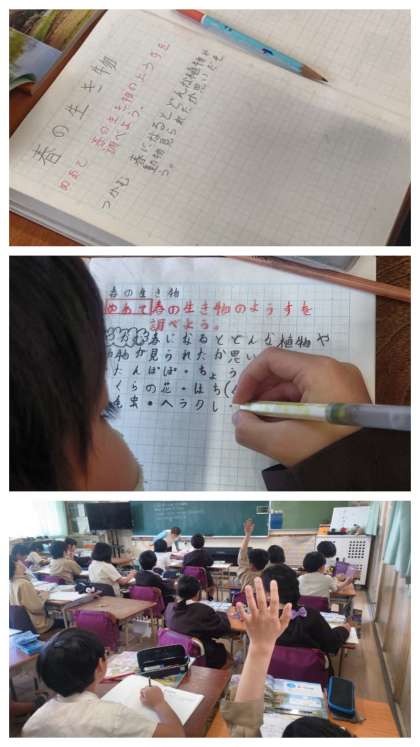 春の生き物
めあて 春の生き物のようすを
調べよう。
つかむ 春になるとどんな植物や
動物が見られたか思いだそ
う。
春の生き物
めあて 春の生き物のようすを
調べよう。
春になるとどんな植物や
物が見られたか思い
たんぽぽ・ちょう
くらの花・はち
虫・ヘラクレ